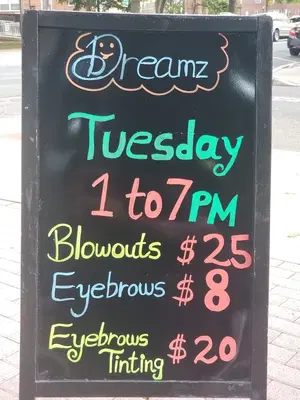 Dreamz
Tuesday
1 to 7 PM
Blowouts $25
Eyebrows $8
Eyebrows
Tinting $20